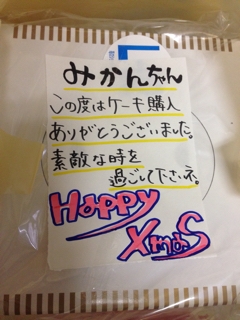 みかんちゃん
この度はケーキ購入
ありがとうございました。
素敵な時を
過ごして下さいネ。
Happy
XmaS